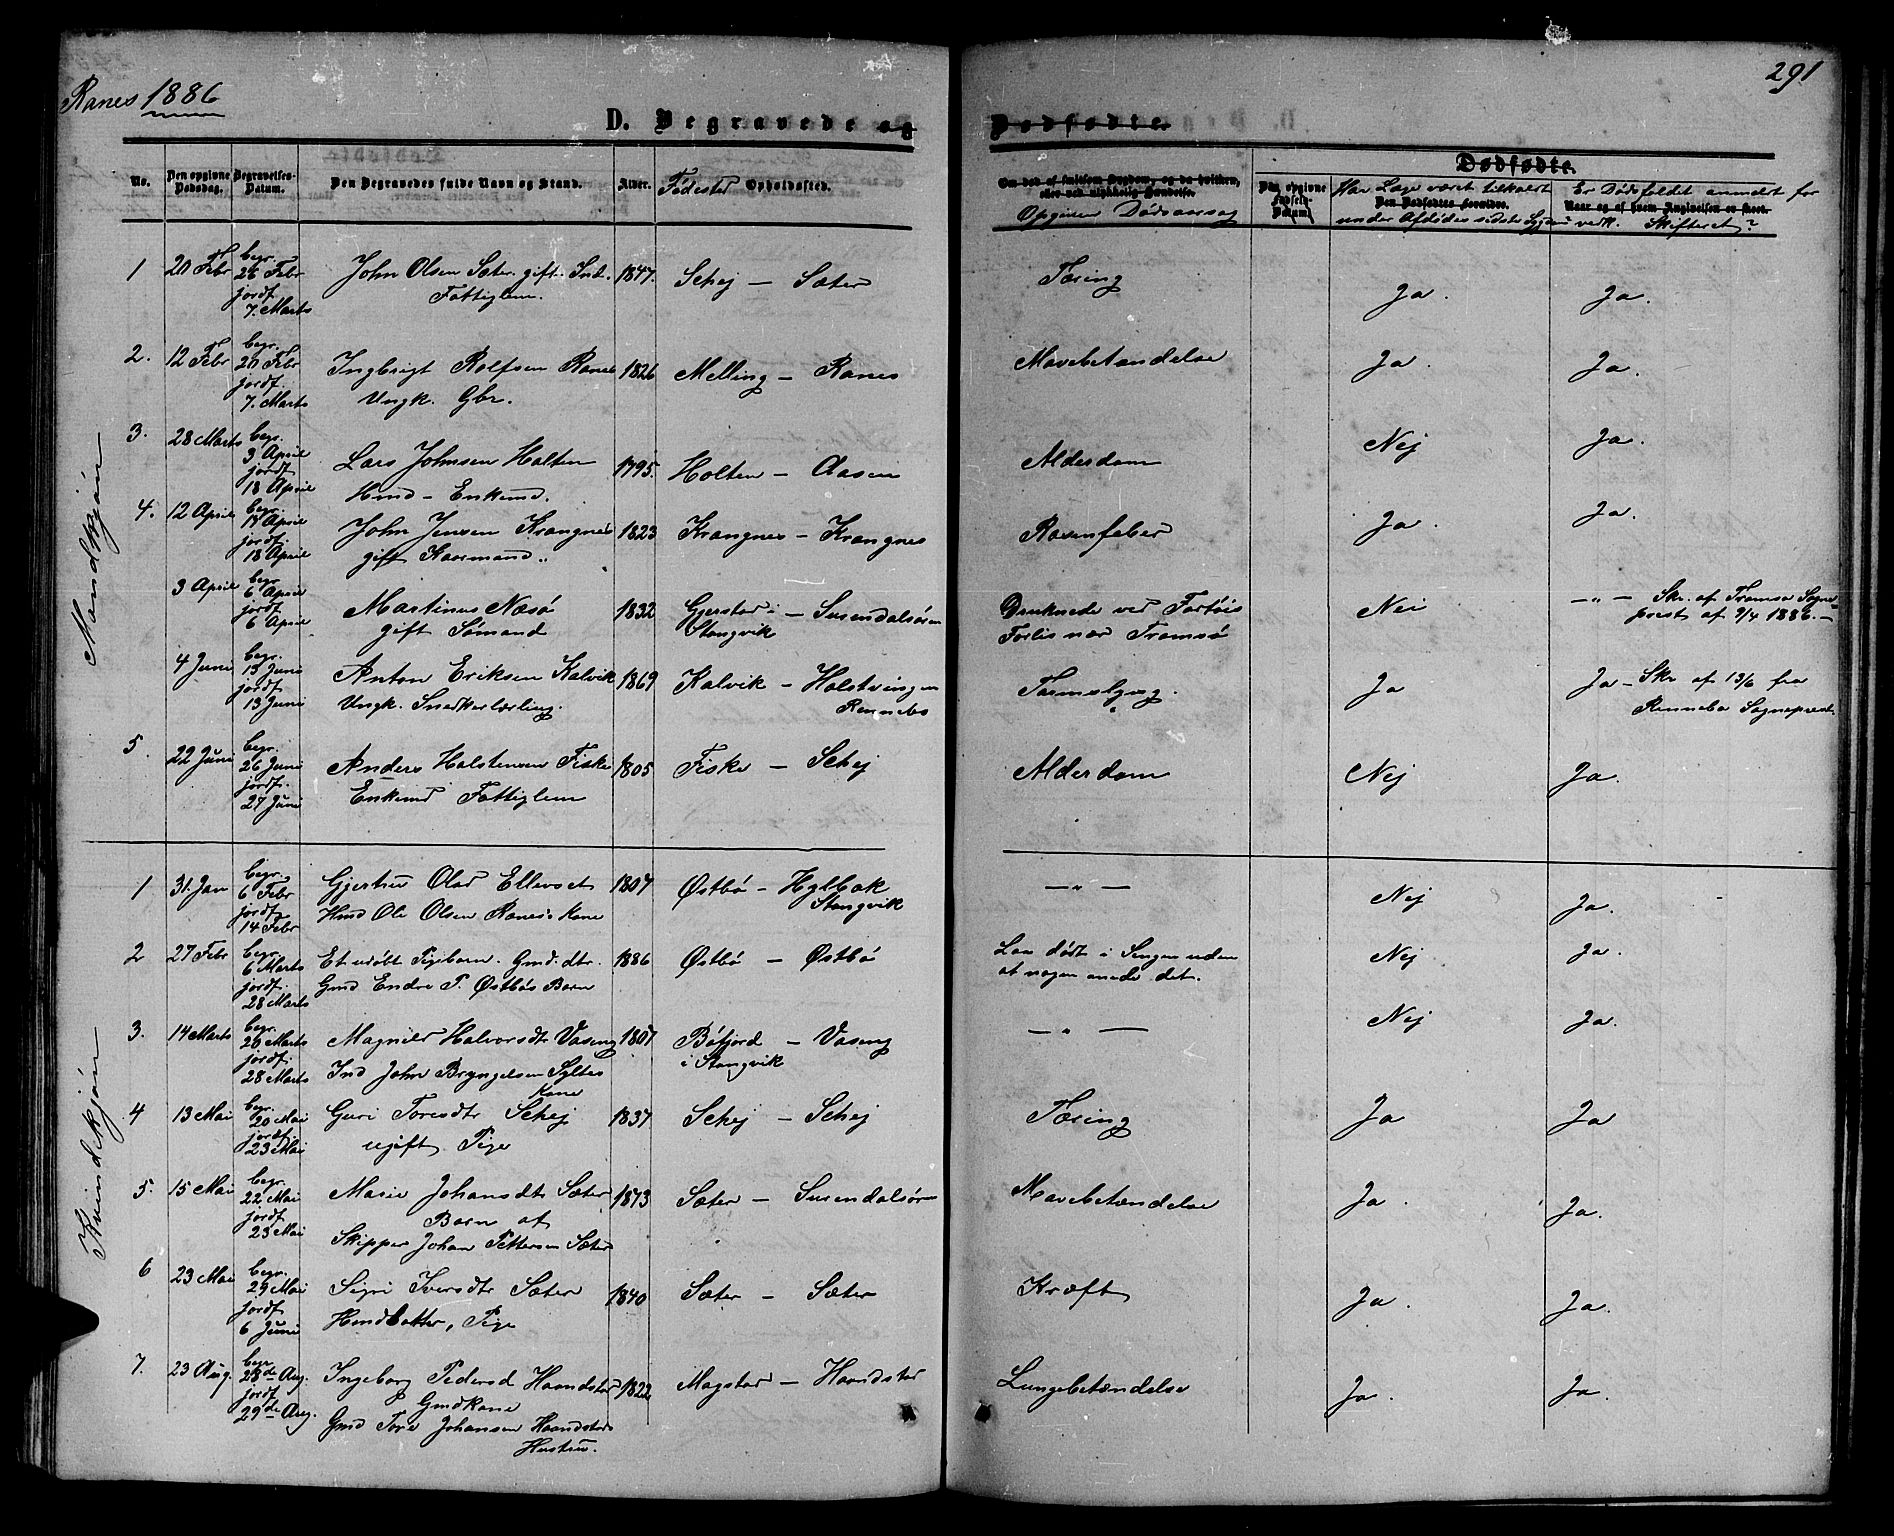 Ranes 1886
291
D. Begravede og
Dødfødte.
No.
Den opgivne Dødsdag.
Begravelses-Datum.
Den Begravedes fulde Navn og Stand.
Alver.
Fødested Opholdssted.
Om død af smitsom Sygdom, og da hvilken, eller ved ulykkelig Hændelse.
Opgiven Dødsaarsag
Den opgivne Fødsels-Datum.
Dødfødte.
Den Dødfødtes Forældre.
Har Læge været tilkaldt
under Afdødes sidste Sygdom
Naar og af hvem Angivelsen er skeet.
Er Dødsfaldet anmeldt for
Skifteret?
Mandkjøn
1 20 Febr begr. 26 Febr jordf. 7. Marts John Olsen Sæter. gift. Ind. 1847. Schej — Sæter Tæring Ja. Ja.
Fattiglem.
2. 12 Febr begr. 20 Febr jordf. 7. Marts Ingbrigt Rolfsen Ranes 1826 Melling — Ranes Mavebetændelse Ja. Ja.
Ungk. Gbr.
3. 28 Marts begr. 3 April jordf. 18 April Lars Johnsen Holten 1795. Holten — Aasen Alderdom Nej Ja.
Hmd — Enkemd.
4. 12 April begr. 18 April jordf. 18 April John Jensen Krangnes 1823 Krangnes — Krangnes Rosenfeber Ja. Ja.
gift Kaarmand.
3 April begr. 6 April jordf. 6 April Martinus Næsö 1832 Gjerstad i — Surendalsøren Druknede ved Fartøis Nei — " — Skr. af Tromsø Sogne-
gift Sømand Stangvik Forlis nær Tromsø prest af 9/4 1886. —
4 Juni begr. 13 Juni jordf. 13 Juni Anton Eriksen Kalvik 1869 Kalvik — Halstvingen Tarmslyng. Ja Ja — Skr. af 13/6 fra
Ungk. Snedkerlærling. Rennebo Rennebo Sogneprest.
5. 22 Juni begr. 26 Juni jordf. 27 Juni Anders Halstensen Fiske 1805 Fiske — Schej Alderdom Nej Ja.
Enkemd Fattiglem
Kvindekjøn
1 31. Jan begr. 6 Febr jordf. 14 Febr Gjertru Olsd Ellevset 1807 Østbö — Hylbak — " — Nej Ja.
Hmd Ole Olsen Ranes's Kone Stangvik
2 27 Febr begr. 6 Marts jordf. 28 Marts Et udöbt Pigebarn. Gmd. dtr. 1886 Østbö — Østbö Laa dødt i Sengen uden Nej Ja.
Gmd Endre P. Østbös Barn at nogen anede det.
3. 14 Marts begr. 20 Marts jordf. 28 Marts Magnild Halvorsdtr Vaseng 1807 Bøfjord — Vaseng — " — Nej Ja.
Ind John Bryngelsen Syltes Kone i Stangvik
4 13 Mai begr. 20 Mai jordf. 23 Mai Guri Toresdtr Schej 1837 Schej — Schej Tæring Ja Ja
ugift Pige
5. 15 Mai begr. 22 Mai jordf. 23 Mai Marie Johansdtr Sæter 1873 Sæter — Surendalsøren Mavebetændelse Ja. Ja.
Barn af
Skipper Johan Pettersen Sæter
6 23 Mai begr. 29 Mai jordf. 6 Juni Sigri Iversdtr Sæter 1840 Sæter — Sæter Kræft Ja. Ja.
Hmddatter, Pige
7. 23 Aug. begr. 28de Aug. jordf. 29de Aug. Ingeborg Pedersd Haandstad 1822 Mogstad — Haandstad Lungebetændelse Ja. Ja.
Gmdkone
Gmd Tore Johansen Haandstads
Hustru.